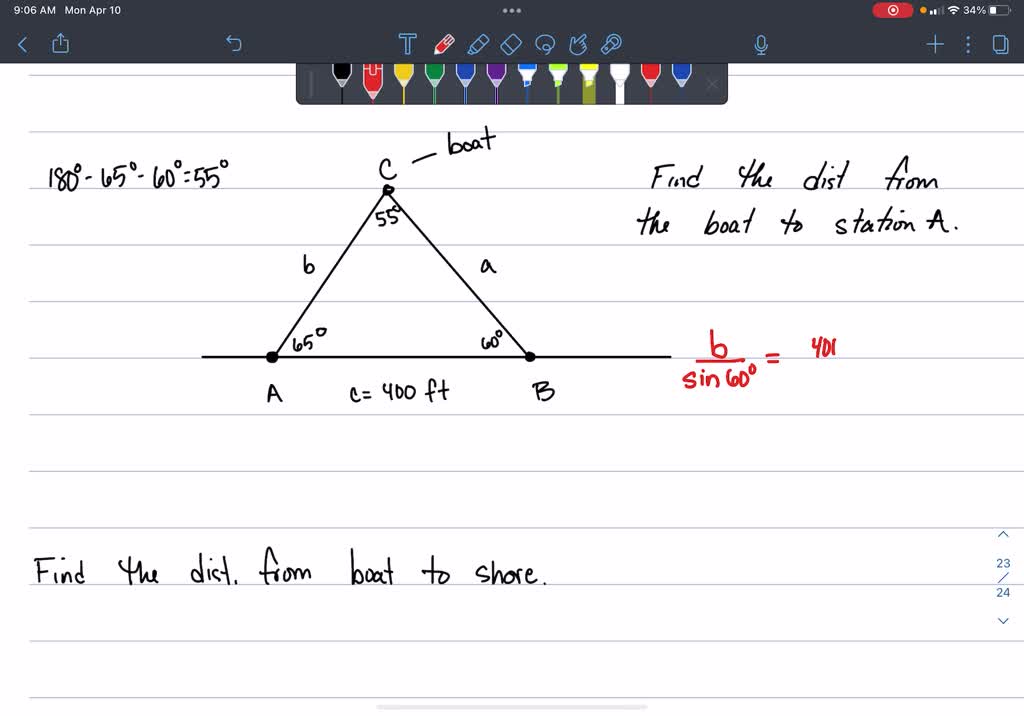 9:06 AM Mon Apr 10
34%
T
C
boat
180° - 65° - 60° = 55°
Find the dist from
the boat to station A.
55°
b
a
65°
60°
b
sin 60°
=
400
A
c = 400 ft
B
Find the dist. from boat to shore.
23
/
24